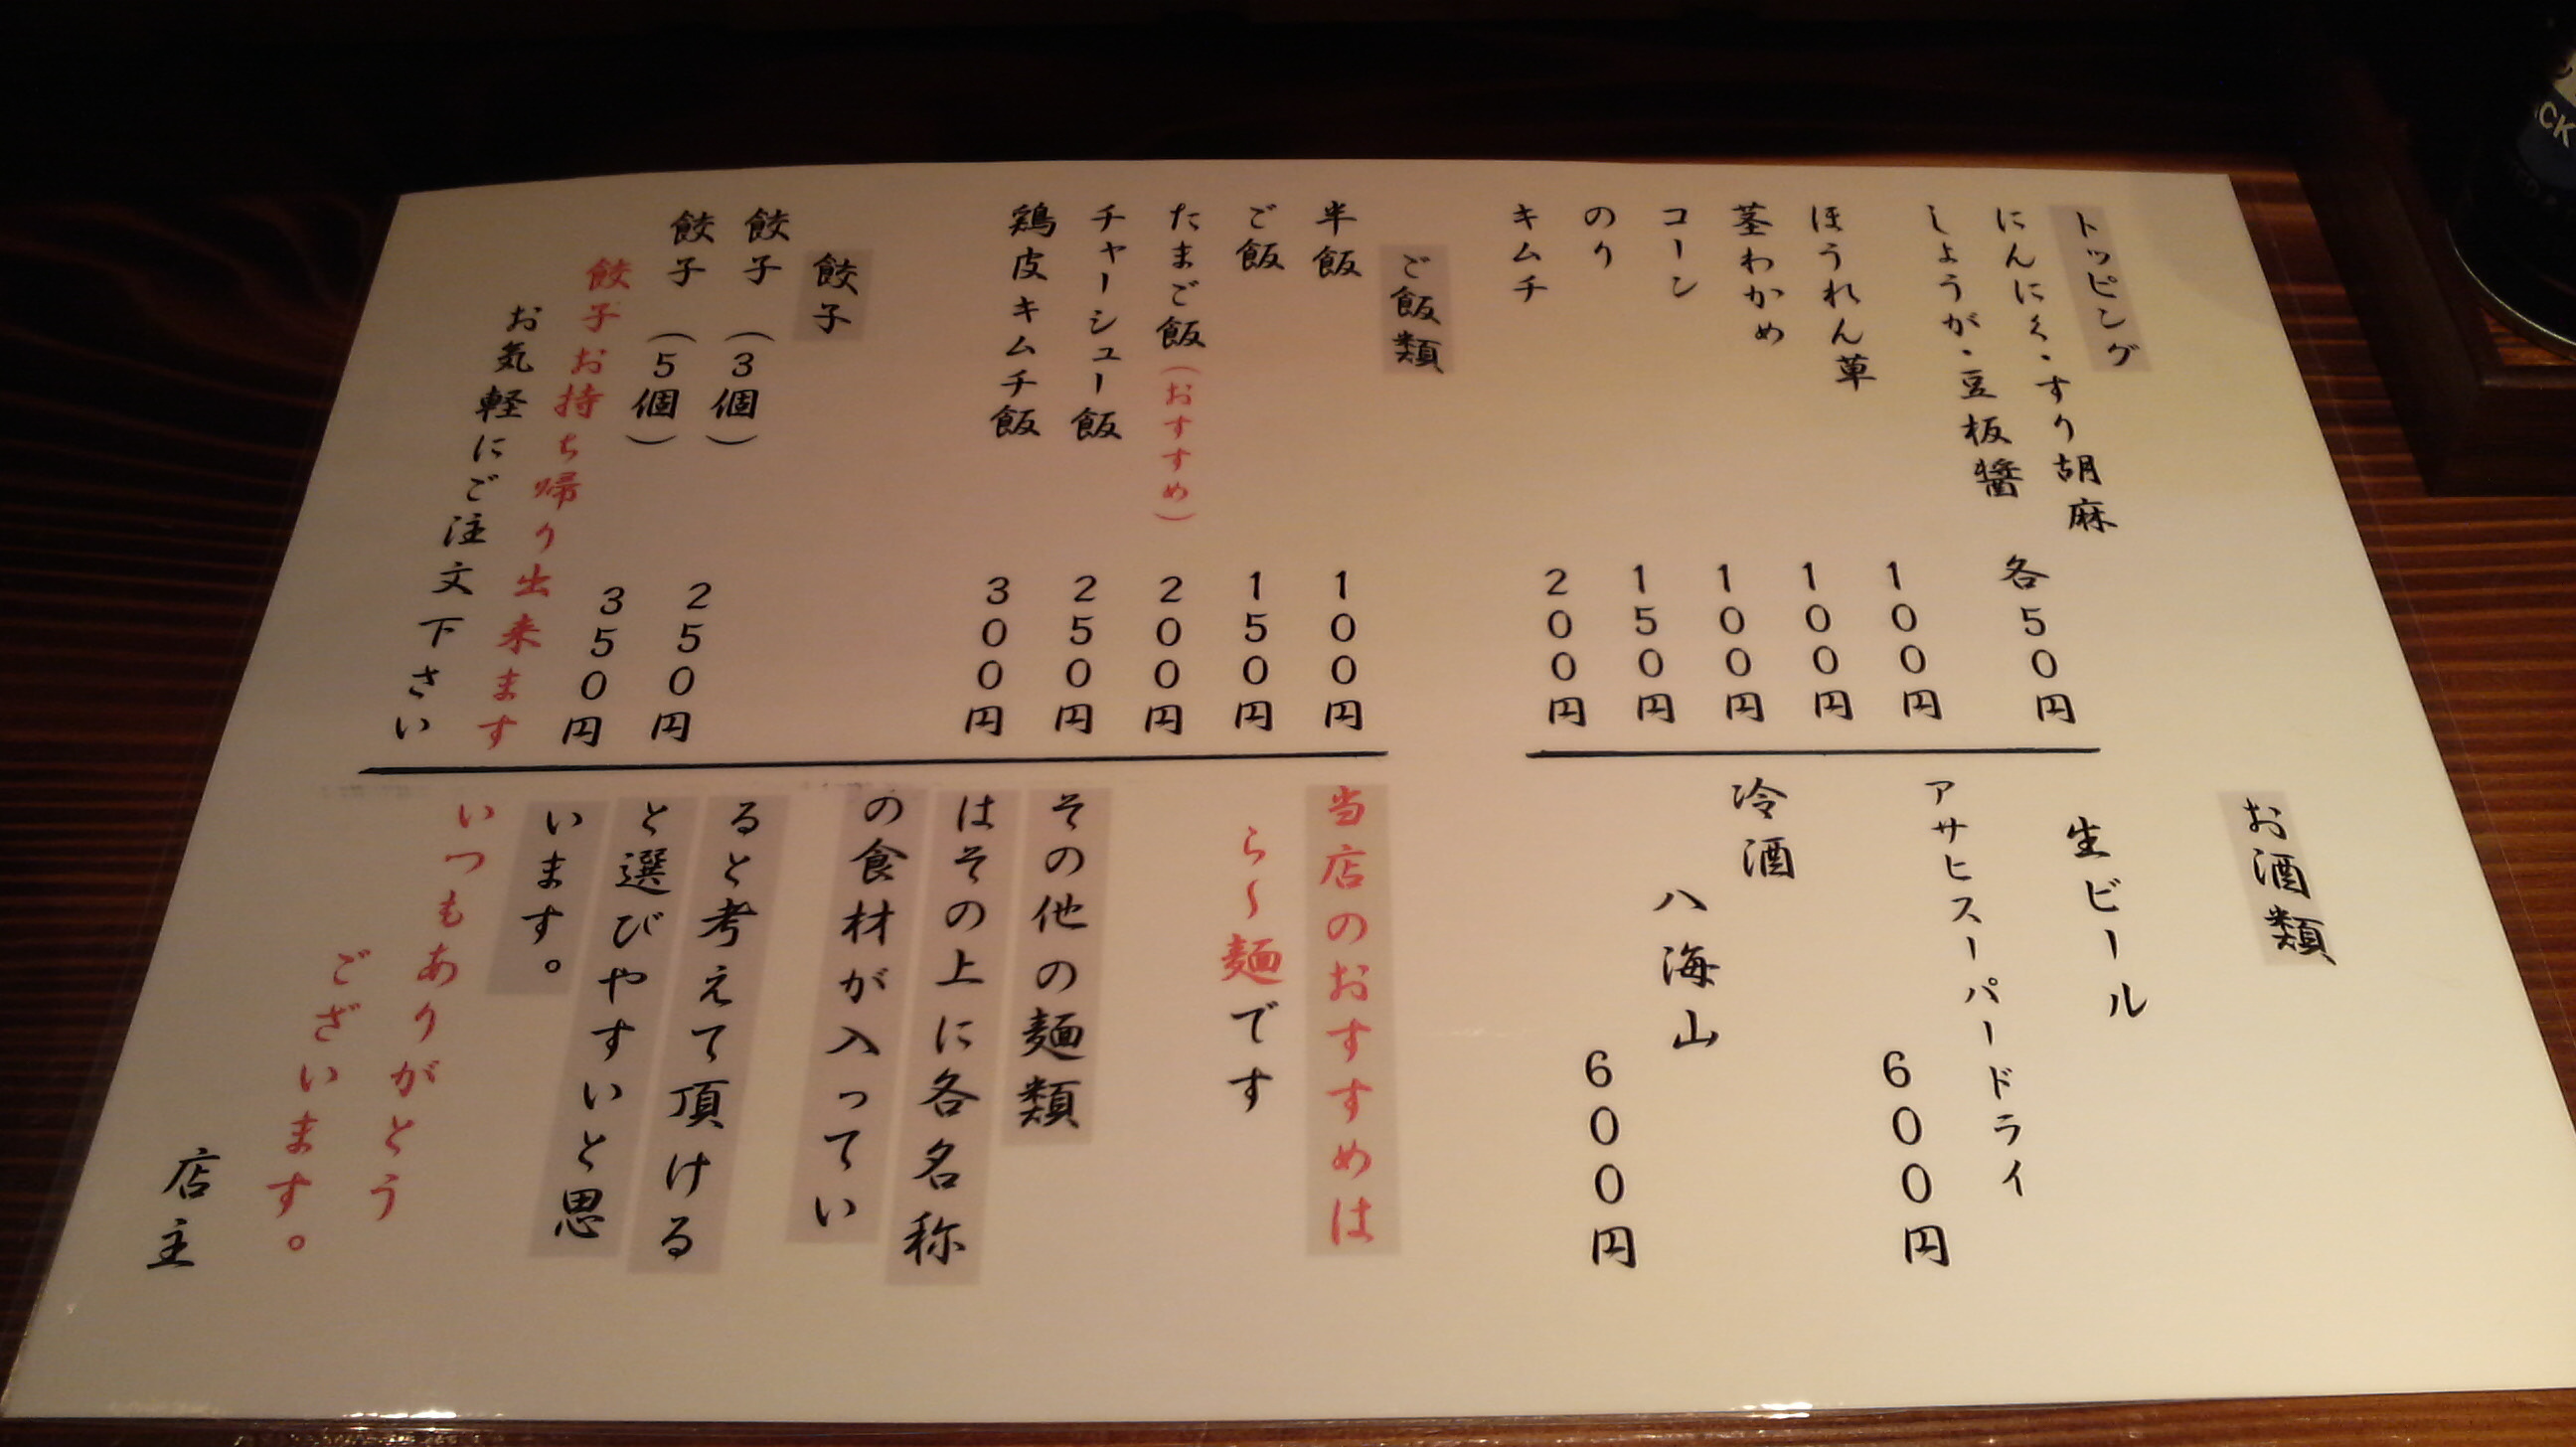 トッピング
にんにく・すり胡麻
しょうが・豆板醤 各50円
ほうれん草 100円
茎わかめ 100円
コーン 100円
のり 150円
キムチ 200円
ご飯類
半飯 100円
ご飯 150円
たまご飯(おすすめ) 200円
チャーシュー飯 250円
鶏皮キムチ飯 300円
餃子
餃子 (3個) 250円
餃子 (5個) 350円
餃子お持ち帰り出来ます
お気軽にご注文下さい
お酒類
生ビール
アサヒスーパードライ
600円
冷酒
八海山
600円
当店のおすすめは
ら〜麺です
その他の麺類
はその上に各名称
の食材が入ってい
ると考えて頂ける
と選びやすいと思
います。
いつもありがとう
ございます。
店主